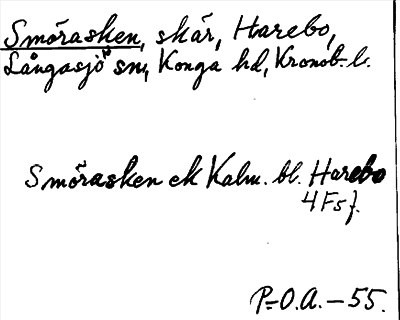 Smörasken, skär, Harebo,
Långasjö sn, Konga hd, Kronob. l.
Smörasken ek Kalm. bl. Harebo
4Fsf.
P-O.A. – 55.